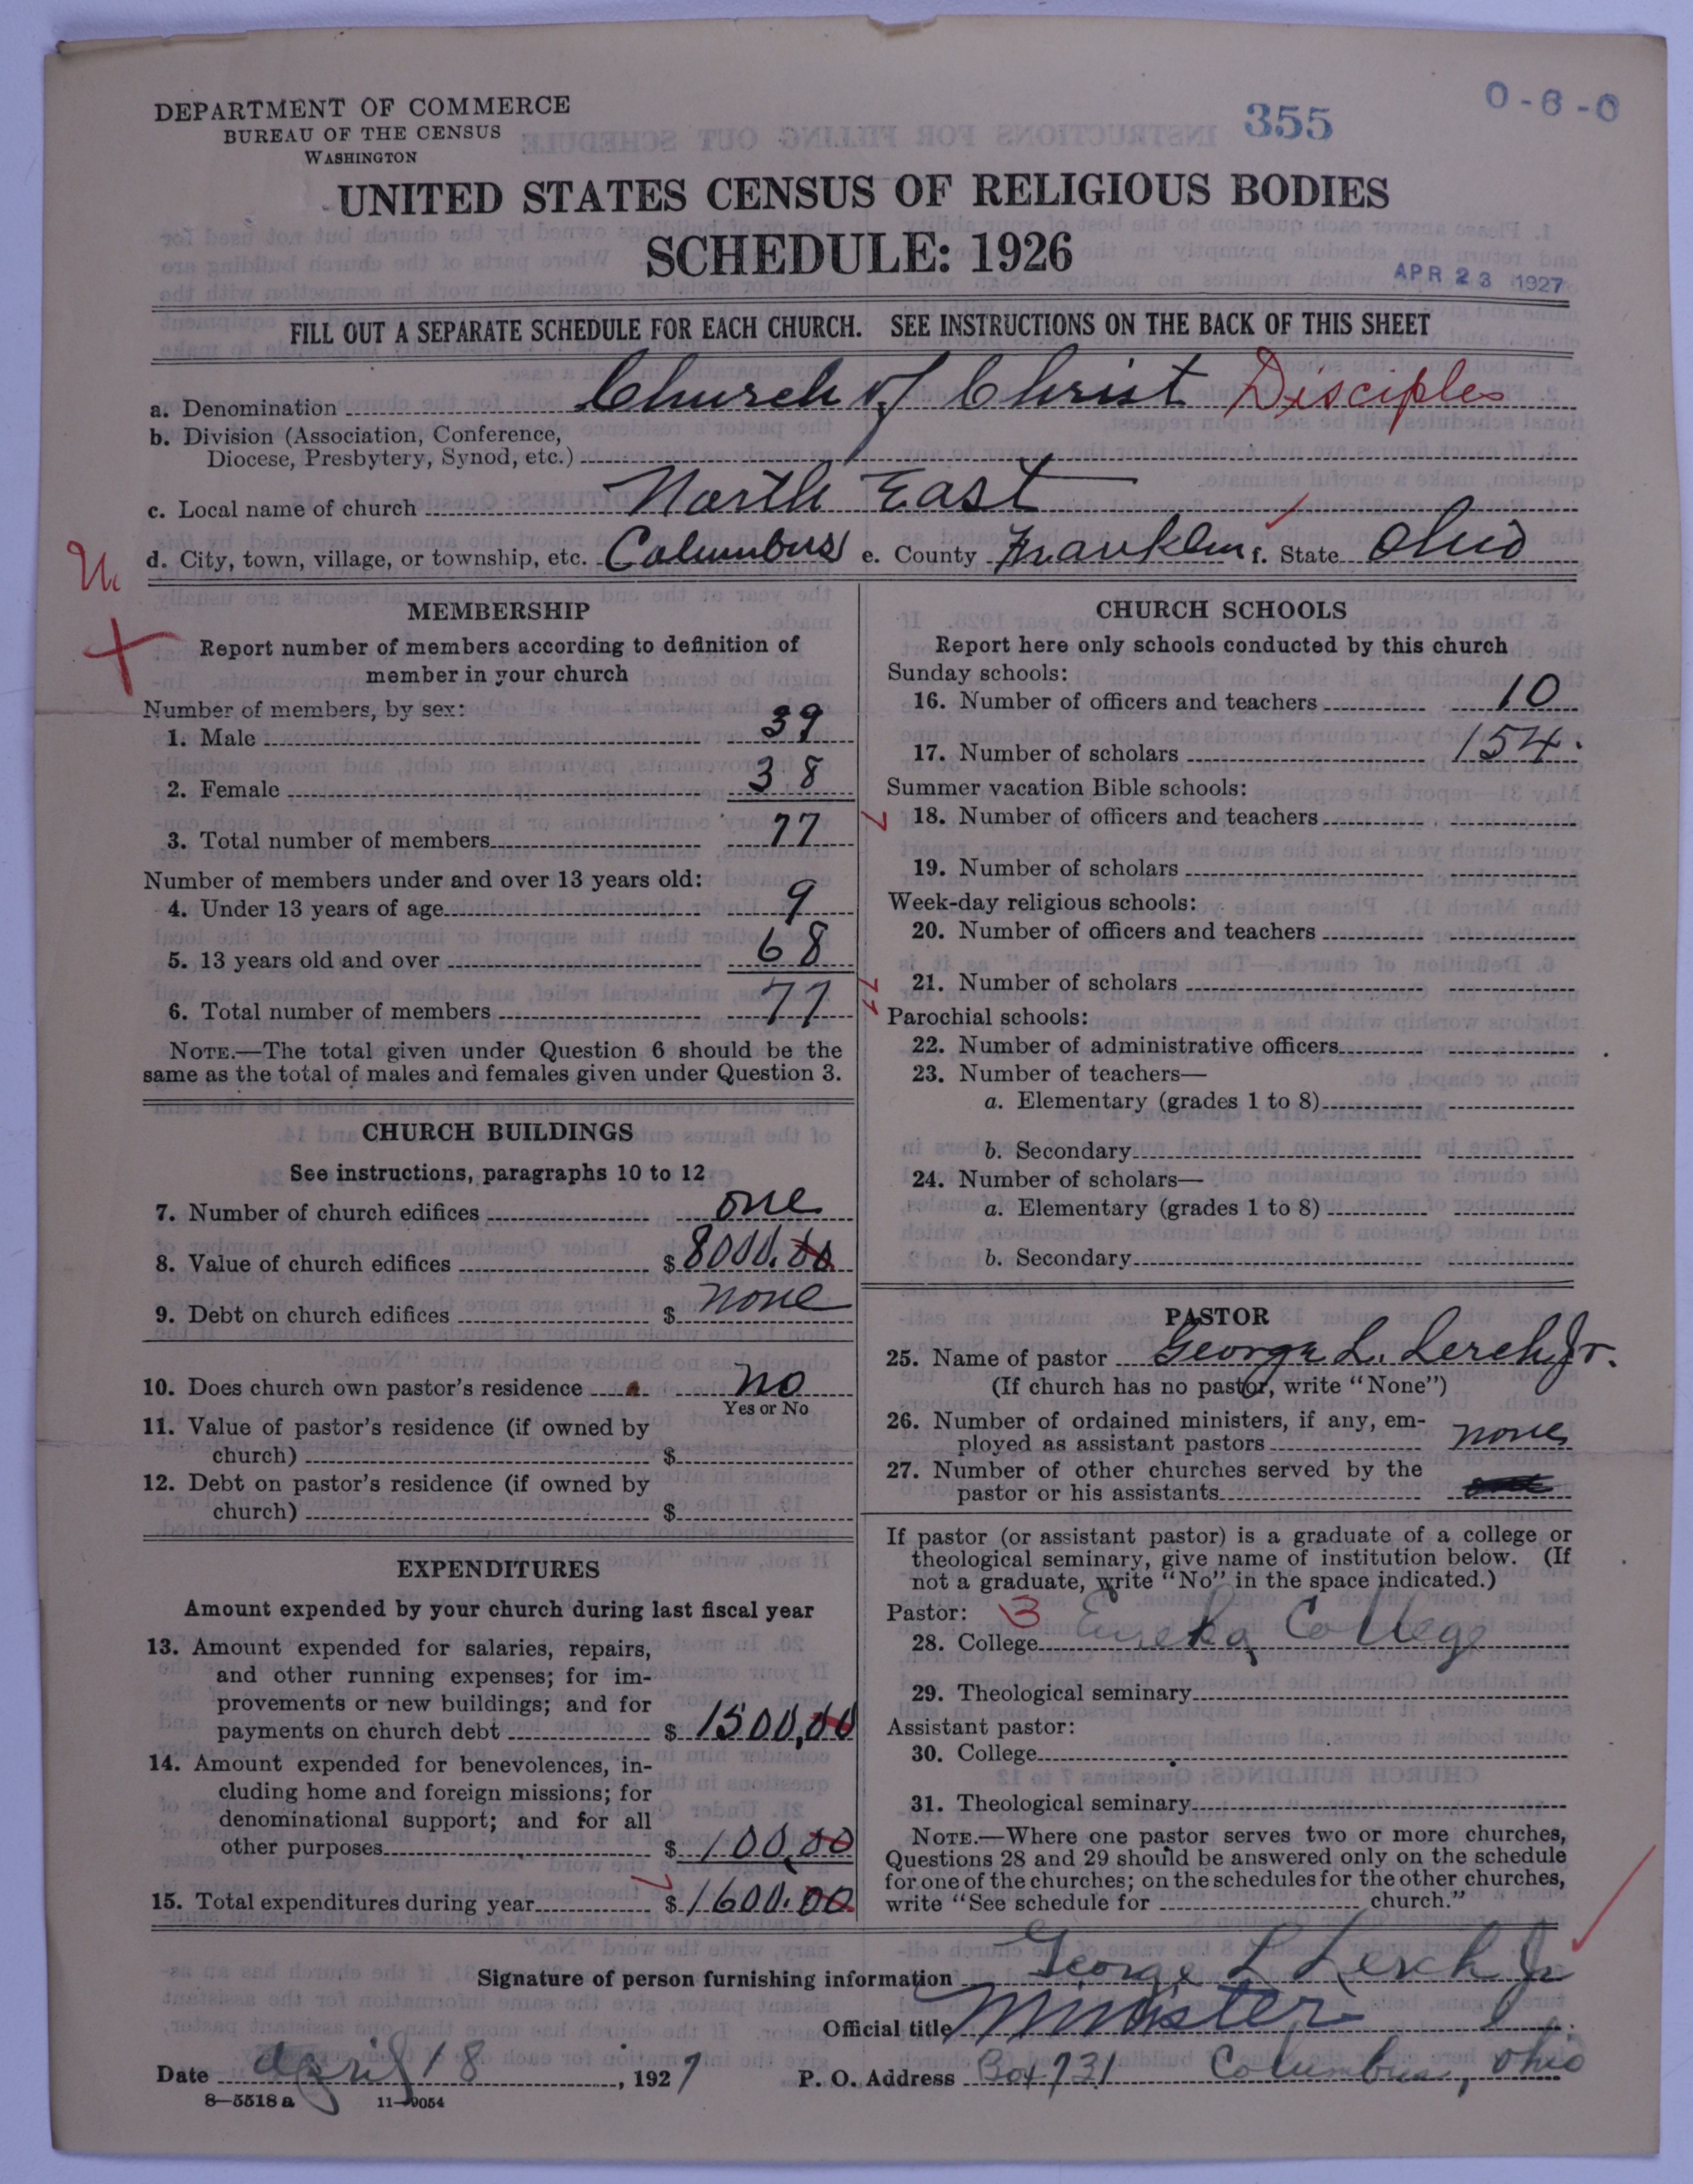 DEPARTMENT OF COMMERCE
BUREAU OF THE CENSUS
WASHINGTON
355
0-6-0
UNITED STATES CENSUS OF RELIGIOUS BODIES
SCHEDULE: 1926
APR 23 1927
FILL OUT A SEPARATE SCHEDULE FOR EACH CHURCH. SEE INSTRUCTIONS ON THE BACK OF THIS SHEET
a. Denomination Church of Christ Disciples
b. Division (Association, Conference,
Diocese, Presbytery, Synod, etc.)
c. Local name of church North East
d. City, town, village, or township, etc. Columbus e. County Franklin f. State Ohio
MEMBERSHIP
Report number of members according to definition of
member in your church
Number of members, by sex:
1. Male 39
2. Female 38
3. Total number of members 77
Number of members under and over 13 years old:
4. Under 13 years of age 9
5. 13 years old and over 68
6. Total number of members 77
NOTE.—The total given under Question 6 should be the
same as the total of males and females given under Question 3.
CHURCH BUILDINGS
See instructions, paragraphs 10 to 12
7. Number of church edifices one
8. Value of church edifices $ 8000.00
9. Debt on church edifices $ none
10. Does church own pastor's residence no
Yes or No
11. Value of pastor's residence (if owned by
church) $
12. Debt on pastor's residence (if owned by
church) $
EXPENDITURES
Amount expended by your church during last fiscal year
13. Amount expended for salaries, repairs,
and other running expenses; for im-
provements or new buildings; and for
payments on church debt $ 1500.00
14. Amount expended for benevolences, in-
cluding home and foreign missions; for
denominational support; and for all
other purposes $ 100.00
15. Total expenditures during year $ 1600.00
CHURCH SCHOOLS
Report here only schools conducted by this church
Sunday schools:
16. Number of officers and teachers 10
17. Number of scholars 154.
Summer vacation Bible schools:
18. Number of officers and teachers
19. Number of scholars
Week-day religious schools:
20. Number of officers and teachers
21. Number of scholars
Parochial schools:
22. Number of administrative officers
23. Number of teachers—
a. Elementary (grades 1 to 8)
b. Secondary
24. Number of scholars—
a. Elementary (grades 1 to 8)
b. Secondary
PASTOR
25. Name of pastor George L. Lerch Jr.
(If church has no pastor, write "None")
26. Number of ordained ministers, if any, em-
ployed as assistant pastors none
27. Number of other churches served by the
pastor or his assistants
If pastor (or assistant pastor) is a graduate of a college or
theological seminary, give name of institution below. (If
not a graduate, write "No" in the space indicated.)
Pastor: 3
28. College Eureka College
29. Theological seminary
Assistant pastor:
30. College
31. Theological seminary
NOTE.—Where one pastor serves two or more churches,
Questions 28 and 29 should be answered only on the schedule
for one of the churches; on the schedules for the other churches,
write "See schedule for church."
Signature of person furnishing information George L Lerch Jr
Official title Minister
Date April 18, 1927
P. O. Address Box 731 Columbus, Ohio
8—5518 a 11—9054